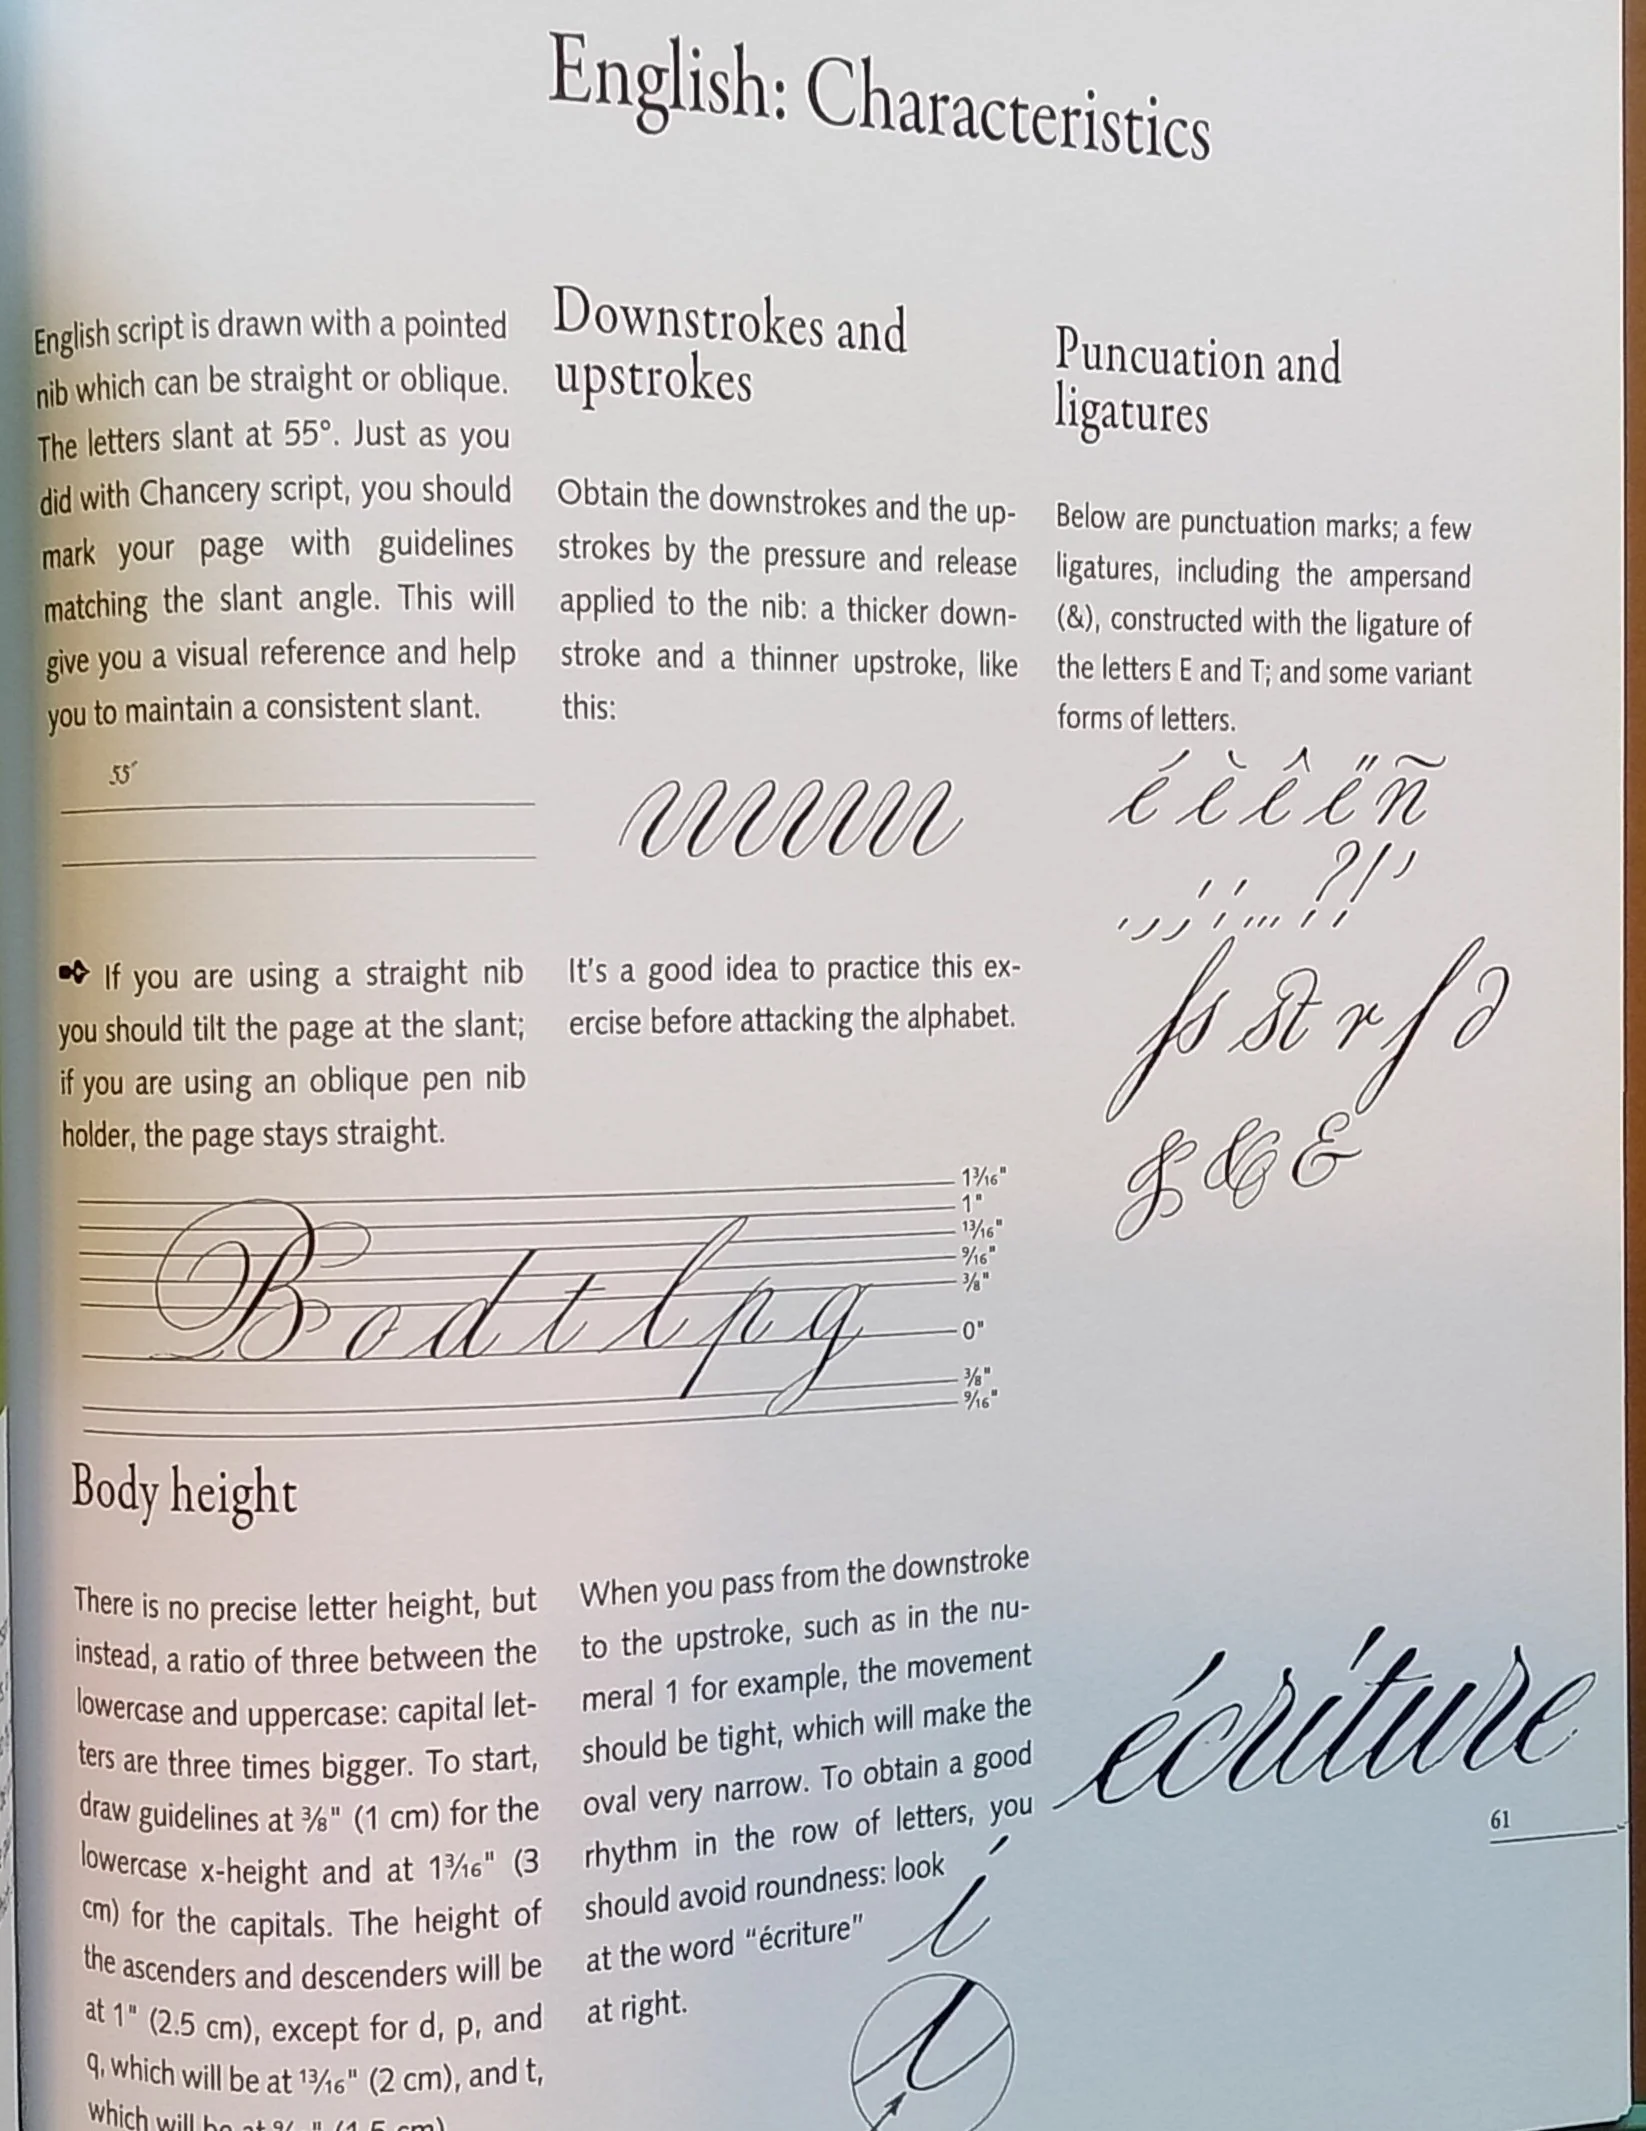 English: Characteristics
English script is drawn with a pointed
nib which can be straight or oblique.
The letters slant at 55°. Just as you
did with Chancery script, you should
mark your page with guidelines
matching the slant angle. This will
give you a visual reference and help
you to maintain a consistent slant.
55°
If you are using a straight nib
you should tilt the page at the slant;
if you are using an oblique pen nib
holder, the page stays straight.
Downstrokes and
upstrokes
Obtain the downstrokes and the up-
strokes by the pressure and release
applied to the nib: a thicker down-
stroke and a thinner upstroke, like
this:
It's a good idea to practice this ex-
ercise before attacking the alphabet.
Puncuation and
ligatures
Below are punctuation marks; a few
ligatures, including the ampersand
(&), constructed with the ligature of
the letters E and T; and some variant
forms of letters.
é è ê ë ñ
. , ; : ... ? ! '
ſs st r ſ ∂
& & &
B o d t l p g
1 3/16"
1"
13/16"
9/16"
3/8"
0"
3/8"
9/16"
Body height
There is no precise letter height, but
instead, a ratio of three between the
lowercase and uppercase: capital let-
ters are three times bigger. To start,
draw guidelines at 3/8" (1 cm) for the
lowercase x-height and at 1 3/16" (3
cm) for the capitals. The height of
the ascenders and descenders will be
at 1" (2.5 cm), except for d, p, and
q, which will be at 13/16" (2 cm), and t,
which will be at 9/16" (1.5 cm)
When you pass from the downstroke
to the upstroke, such as in the nu-
meral 1 for example, the movement
should be tight, which will make the
oval very narrow. To obtain a good
rhythm in the row of letters, you
should avoid roundness: look
at the word "écriture"
at right.
i
écriture
61